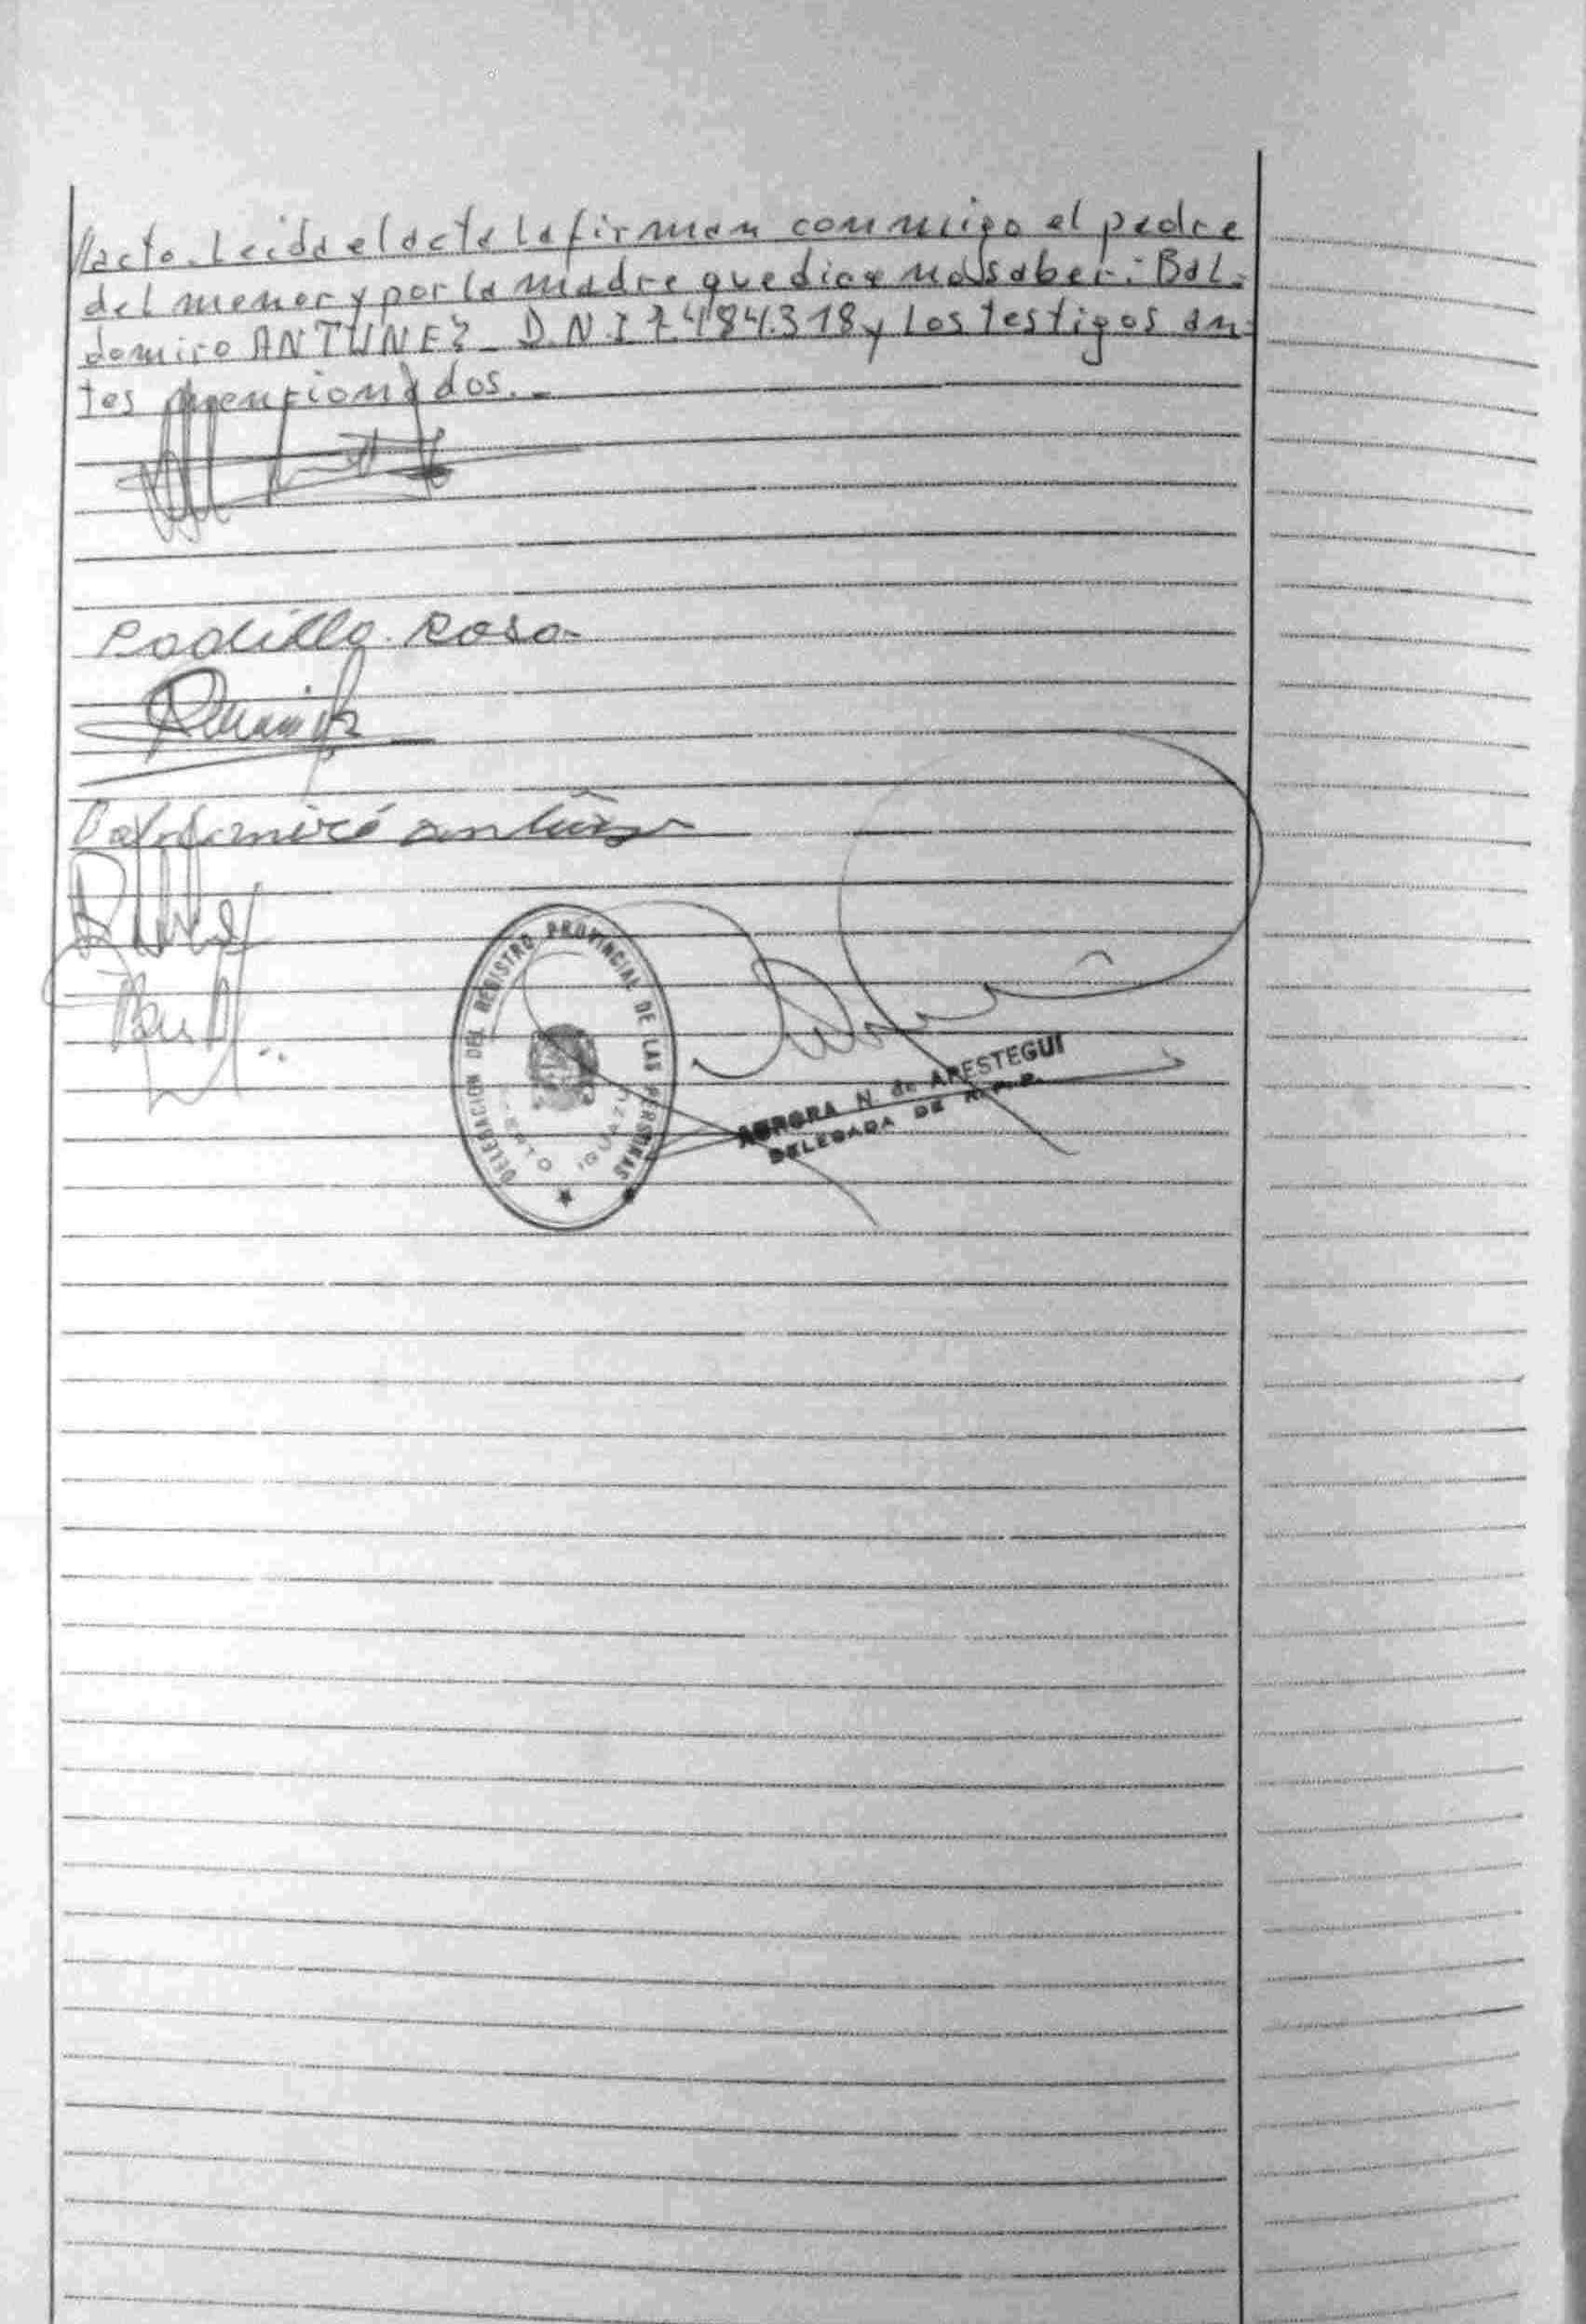 acto. Leida el acta la firman conmigo el padre
del menor y por la madre que dice no saber: Bal-
domiro ANTUNEZ D.N.I 7.484.318 y los testigos an-
tes mencionados.-
Padilla Rosa
DELEGACION DEL REGISTRO PROVINCIAL DE LAS PERSONAS
PUERTO IGUAZU
AURORA N. de ARESTEGUI
DELEGADA DE R.P.P.